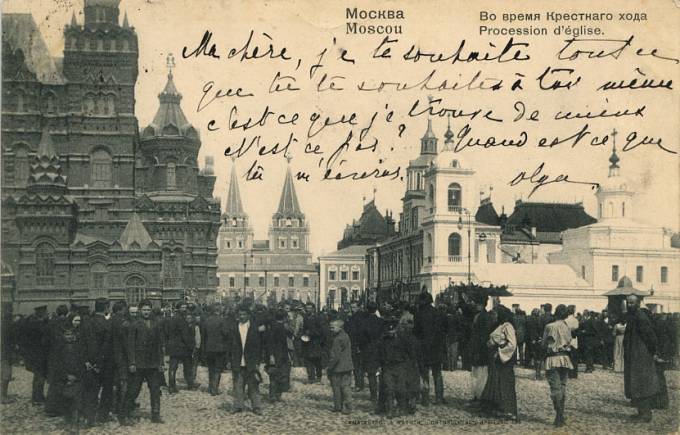 Москва
Moscou
Во время Крестнаго хода
Procession d'église.
Ma chère, je te souhaite tout ce
que tu te souhaites à toi même
c'est ce que je trouve de mieux
N'est ce pas? Quand est ce que
tu m'écriras. Olga